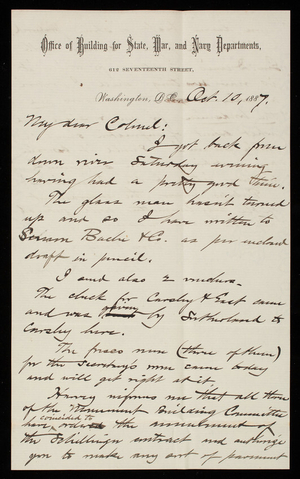 Office of Building for State, War, and Navy Departments,
612 SEVENTEENTH STREET,
Washington, D.C., Oct. 10, 1887.
My dear Colonel:
I got back from
down river Saturday evening
having had a pretty good time.
The glass man hasn't turned
up and so I have written to
Bache & Co. as per inclosed
draft in pencil.
I send also 2 vouchers.
The check for Carsley & East came
and was given by Sutherland to
Carsley here.
The fresco men (three of them)
for the Secretary's room came today
and will get right at it.
Harvey informs me that all three
of the Monument Building Committee
have consided to the
of the Schillinger contract and authorize
you to make any sort of pavement